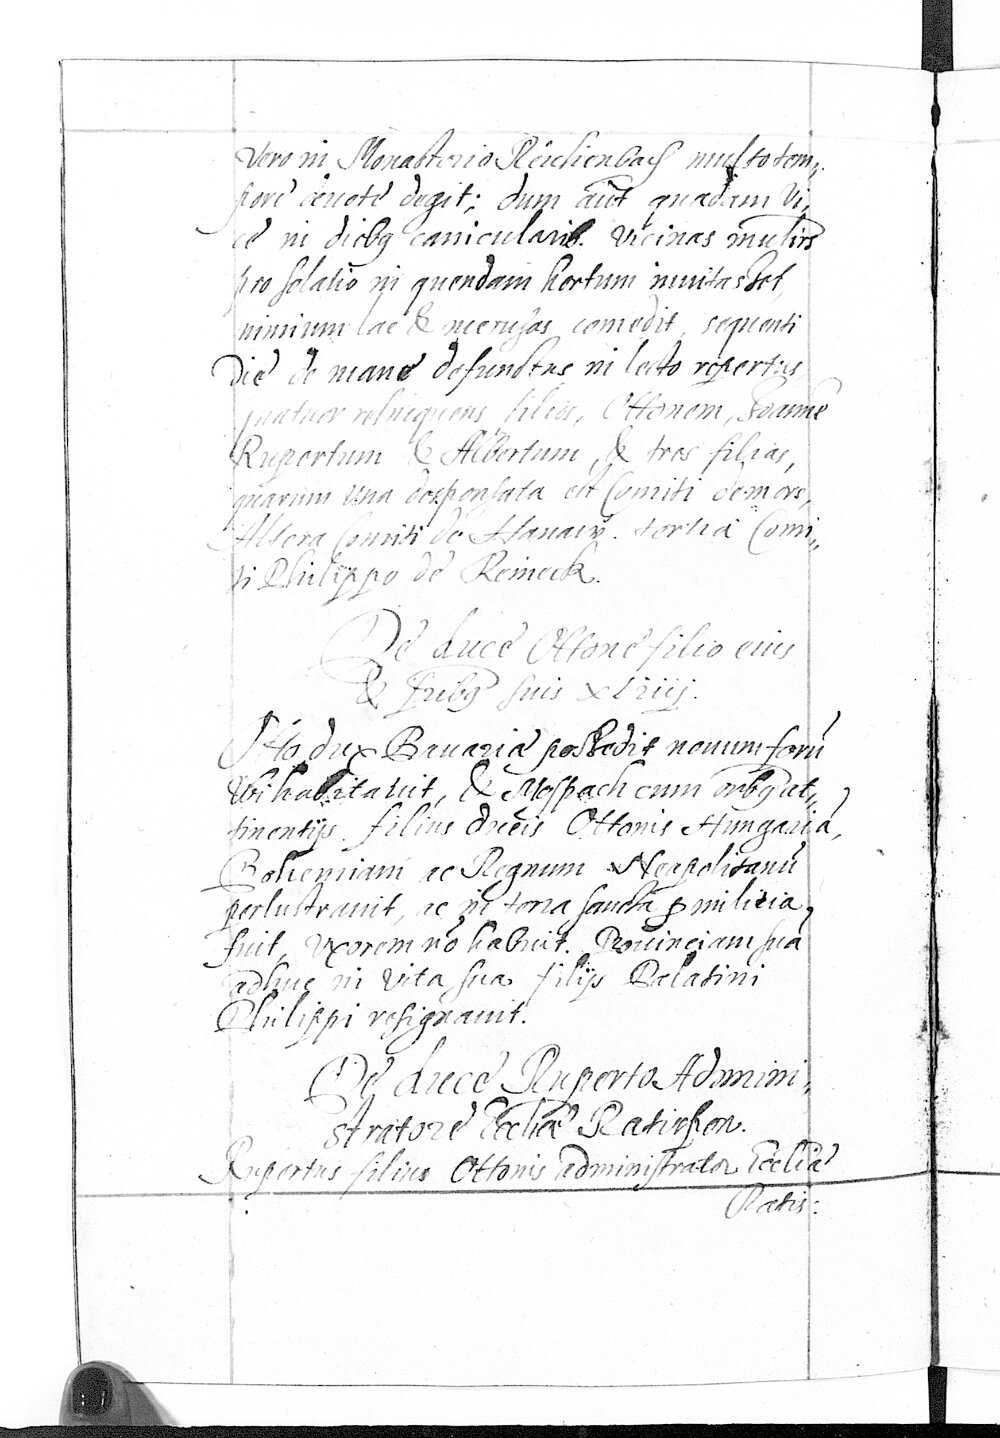 Vero in Monasterio Reichenbach multo tem„
pore deuote degit; dum aut quadam Vi„
ce in diebq canicularib. Vicinas mulirs
pro solatio in quendam hortum inuitasset,
nimium lac & merusas comedit, sequenti
Die de mane defunctus in lecto repertus
quatuor relinquens filios, Ottonem, Joanne
Rupertum & Albertum, & tres filias,
quarum Una desponsata est Comiti de mors,
Altera Comiti de Hanaw. tertia Comi„
ti Philippo de Reineck.
De duce Ottone filio eius
& fribq suis xliiij.
Otto dux Bauariae possedit nouum forū
Ubi habitauit, & Mospach cum oībq at„
tinentijs. filius ducis Ottonis Hungaria,
Bohemiam ac Regnum Neapolitanū
perlustrauit, ac in terra sancta p militia
fuit, Vxorem nō habuit. Prouinciam suā
adhuc in vita sua filijs Palatini
Philippi resignauit.
De duce Ruperto Admini„
stratore Eccliae Ratispon.
Rupertus filius Ottonis administrator Eccliae
Ratis: